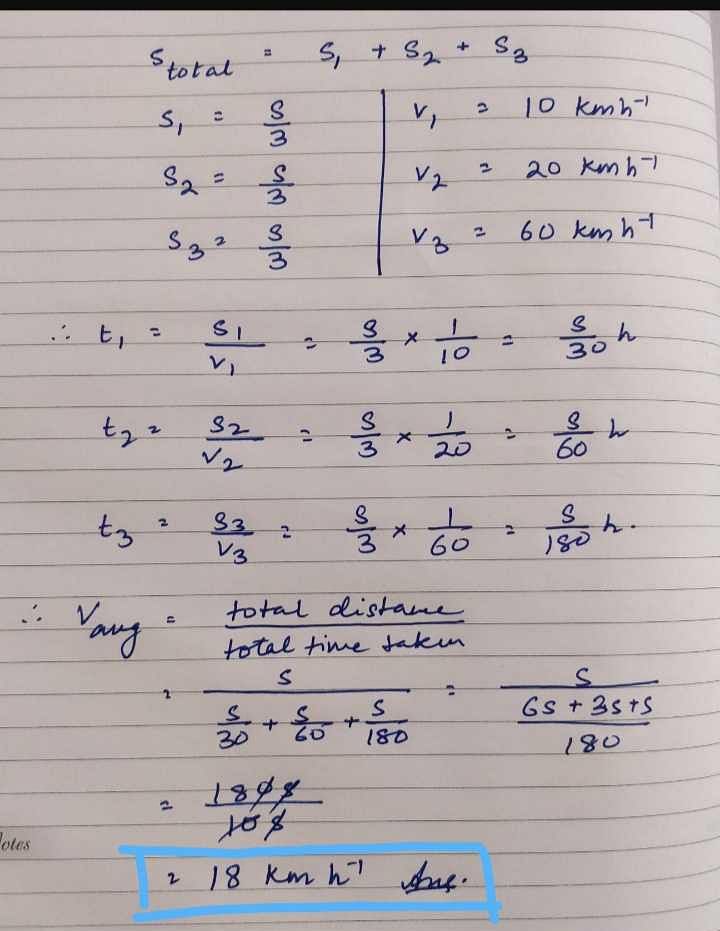 S total = S₁ + S₂ + S₃
S₁ = S/3 | V₁ = 10 kmh⁻¹
S₂ = S/3 | V₂ = 20 kmh⁻¹
S₃ = S/3 | V₃ = 60 kmh⁻¹
∴ t₁ = S₁/V₁ = S/3 × 1/10 = S/30 h
t₂ = S₂/V₂ = S/3 × 1/20 = S/60 h
t₃ = S₃/V₃ = S/3 × 1/60 = S/180 h.
∴ Vavg = total distance / total time taken
= S / (S/30 + S/60 + S/180) = S / ((6S + 3S + S)/180)
= 180S / 10S
otes
= 18 km h⁻¹ Ans.